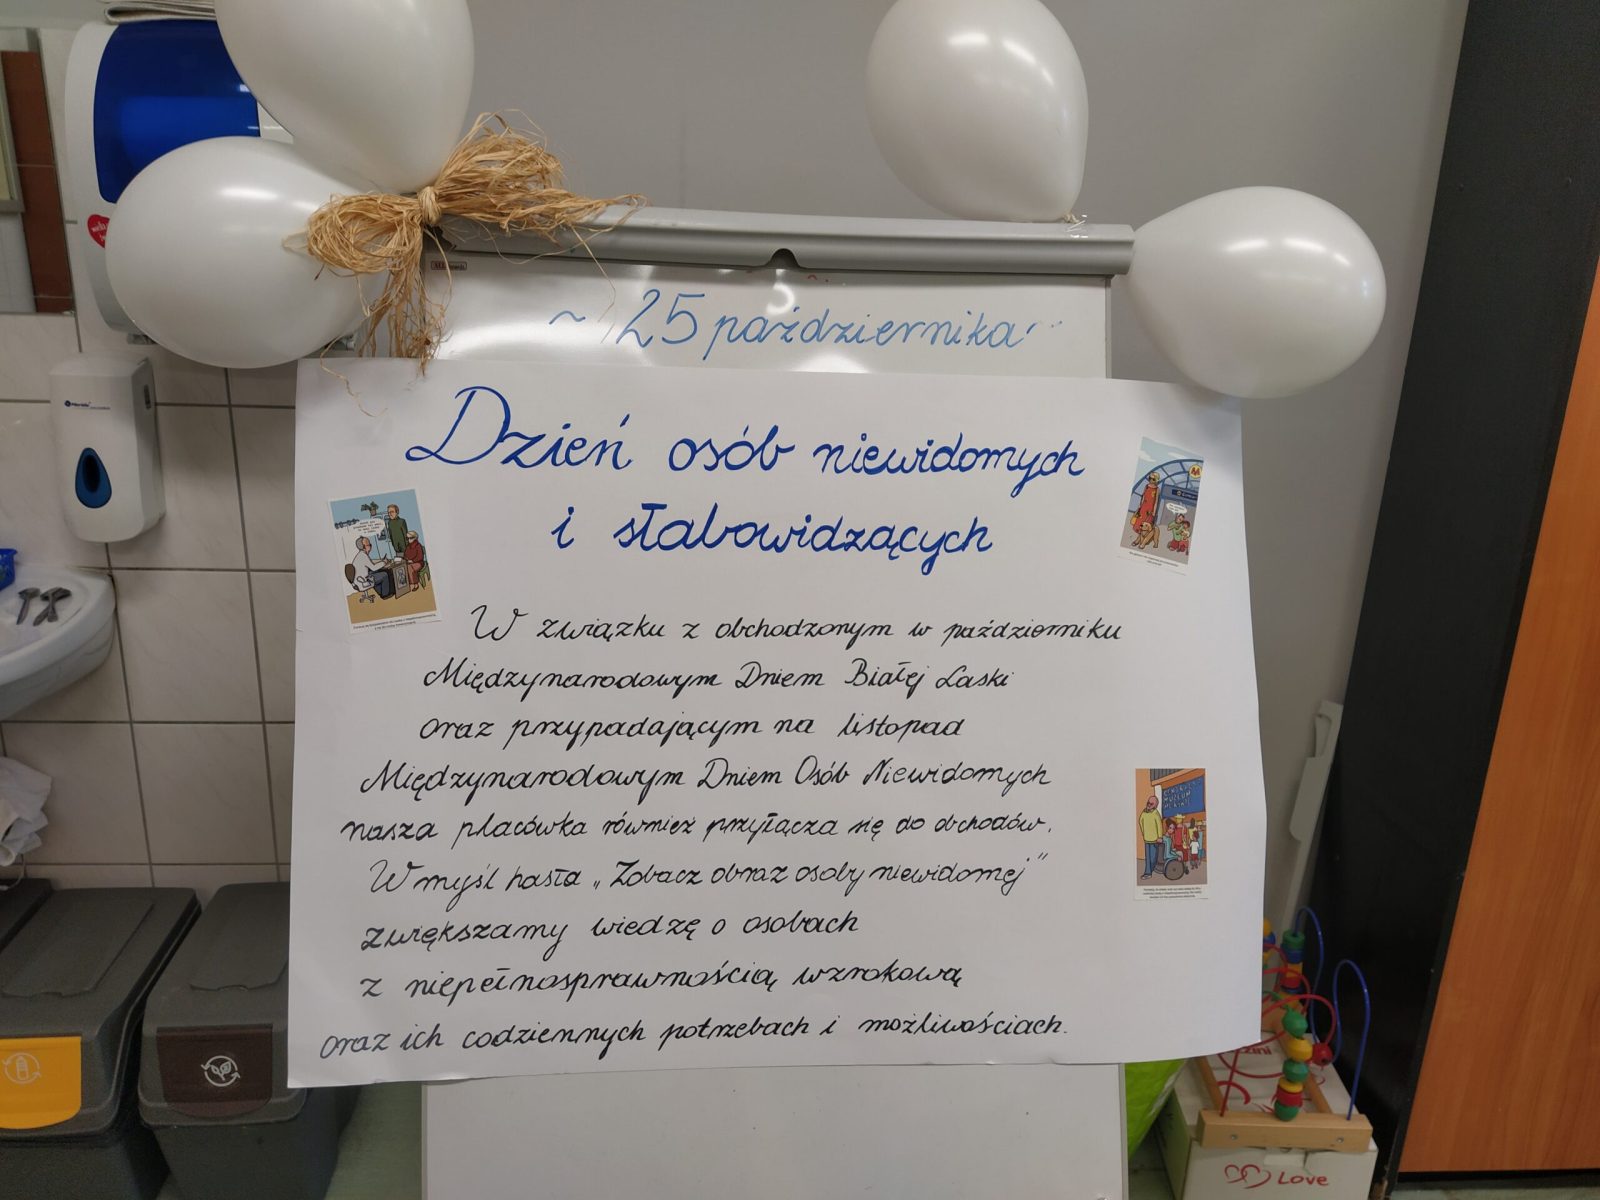 ~ 25 października
Dzień osób niewidomych
i słabowidzących
W związku z obchodzonym w październiku
Międzynarodowym Dniem Białej Laski
oraz przypadającym na listopad
Międzynarodowym Dniem Osób Niewidomych
nasza placówka również przyłącza się do obchodów.
W myśl hasła „Zobacz obraz osoby niewidomej”
zwiększamy wiedzę o osobach
z niepełnosprawnością wzrokową
oraz ich codziennych potrzebach i możliwościach.
MUZEUM
Love